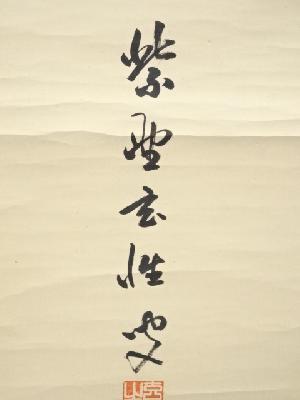 紫野玄性叟